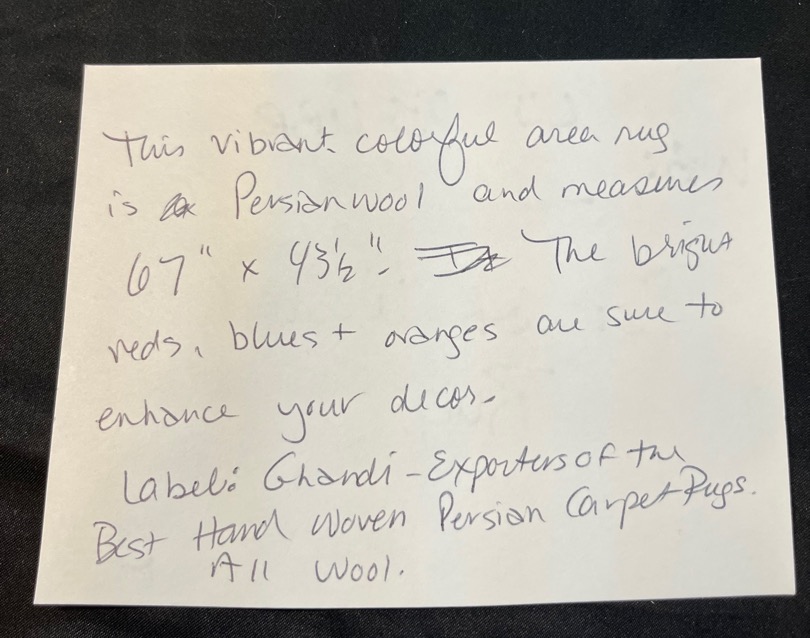 This vibrant colorful area rug
is Persian wool and measures
67" x 43½". The bright
reds, blues + oranges are sure to
enhance your decor.
Label: Ghandi - Exporters of the
Best Hand Woven Persian Carpet Rugs.
All Wool.